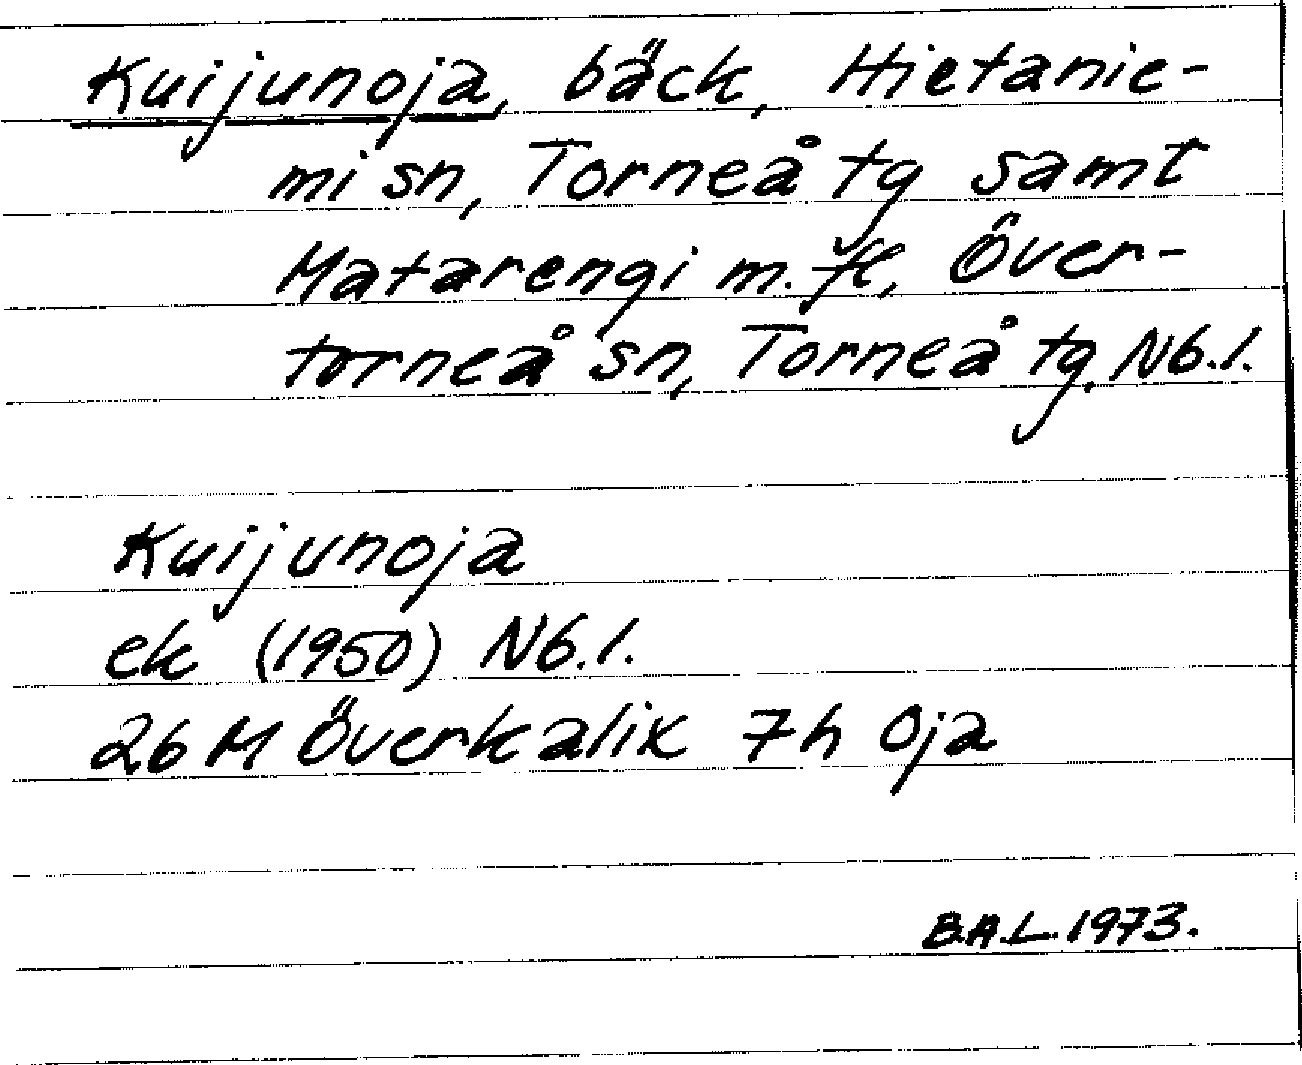 Kuijunoja, bäck, Hietanie-
mi sn, Torneå tg samt
Matarengi m.fl., Över-
torneå sn, Torneå tg, Nb.l.
Kuijunoja
ek (1950) Nb.l.
26 M Överkalix 7h Oja
B.A.L. 1973.